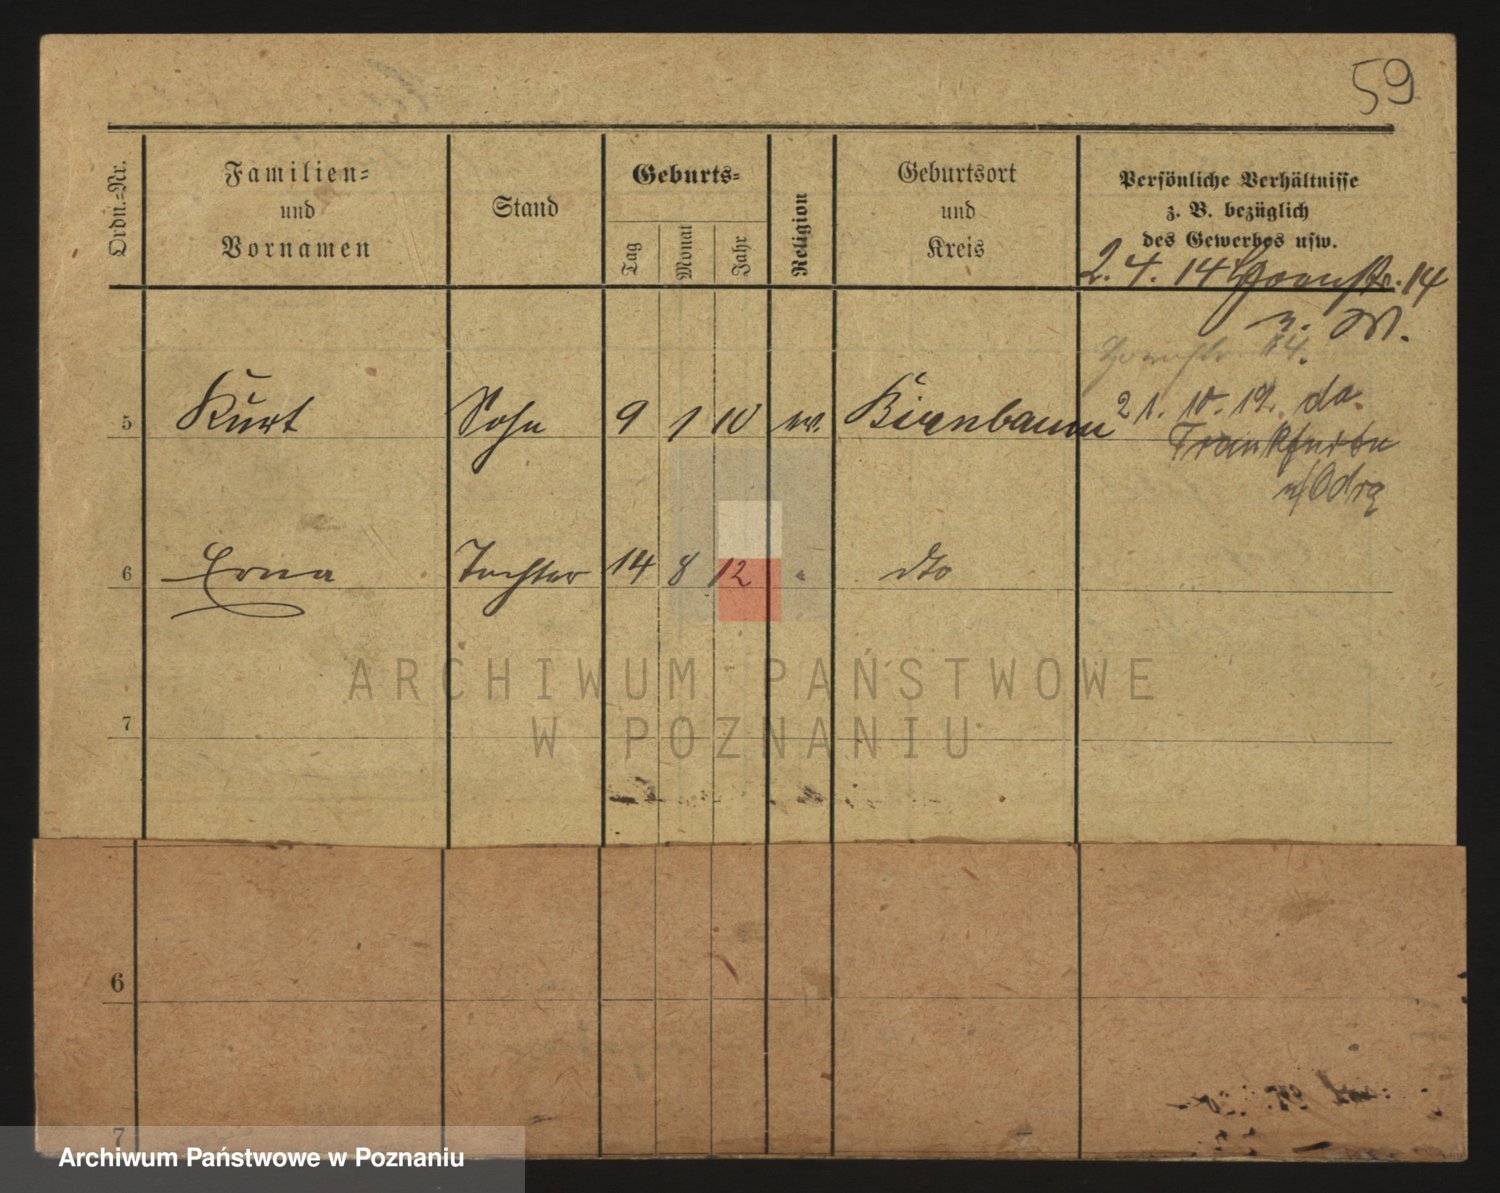 59
Ordn.=Nr.
Familien=
und
Vornamen
Stand
Geburts=
Tag
Monat
Jahr
Religion
Geburtsort
und
Kreis
Persönliche Verhältnisse
z. B. bezüglich
des Gewerbes usw.
2. 4. 14 14
5 Kurt Sohn 9 1 10 ev. Birnbaum
21. 10. 19. da
Frankfurt
a/Oder
6 Erna Tochter 14 8 12 " dto
7
ARCHIWUM PAŃSTWOWE
W POZNANIU
6
7
Archiwum Państwowe w Poznaniu